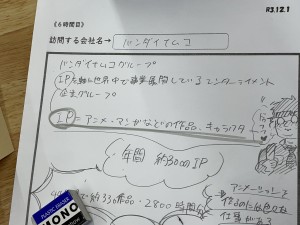 R3.12.1
《6時間目》
訪問する会社名→ バンダイナムコ
バンダイナムコグループ
IPを軸に世界中で事業展開しているエンターテイメント
企業グループ
IP=アニメ・マンガなどの作品、キャラクター
年間 約300IP
約330作品・2800時間
アニメーション
作品に
仕事がある
PLASTIC ERASER
MONO